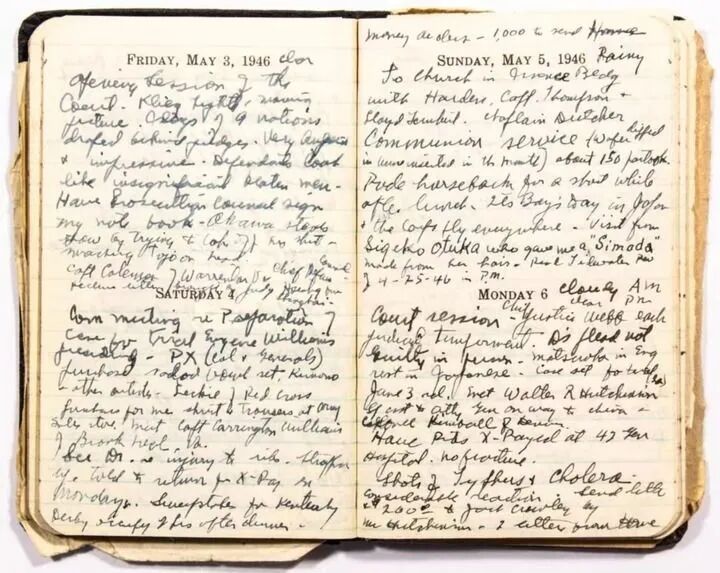 FRIDAY, MAY 3, 1946 clear
Opening Session of the
Court. Klieg lights, moving
picture. Flags of 9 nations
draped behind judges. Very august
& impressive. Defendants look
like insignificant beaten men -
Have Prosecution Counsel sign
my note book - Okawa steals
show by trying to take off his shirt -
smacking Tojo on head
Capt Coleman of Warrenton Va Chief Defense Counsel
SATURDAY 4
Com meeting re Preparation of
case for trial Eugene Williams
presiding - PX (Col & Generals)
purchased salad bowl set, Kimono
& other articles - Red Cross
for me shirt & trousers at Army
Sales store. Met Capt Carrington Williams
of Brook Neal, Va.
See Dr. re injury to rib. Strapped
up. Told to return for X-Ray on
Monday. Sweepstake for Kentucky
Derby after dinner.
money orders - 1,000 to send Home
SUNDAY, MAY 5, 1946 Rainy
To Church in Finance Bldg
with Hardin, Capt. Thompson &
Lloyd. Chaplain Ditcher
Communion service (wafer dipped
in wine inserted in the mouth) about 150 partook.
Rode horseback for a short while
after lunch. It's Boy's Day in Japan
& the carp fly everywhere - Visit from
Sigeko Otuka who gave me a "Simada"
made from her hair - Read Tidewater Rev
of 4-25-46 in P.M.
MONDAY 6 cloudy AM
clear P.M.
Court session - Chief Justice Webb each
. D's plead not
guilty in person. Matsuoka in Eng
rest in Japanese - Case set for trial
June 3rd. Met Walter R Hutchinson
Asst to Atty Gen on way to China -
Colonel
Have Ribs X-Rayed at 42 Gen
Hospital. no fracture.
Shots of Typhus & Cholera.
considerable reaction. Send letter
& $200.00 to by
Mr Hutchinson - 2 letters from Home